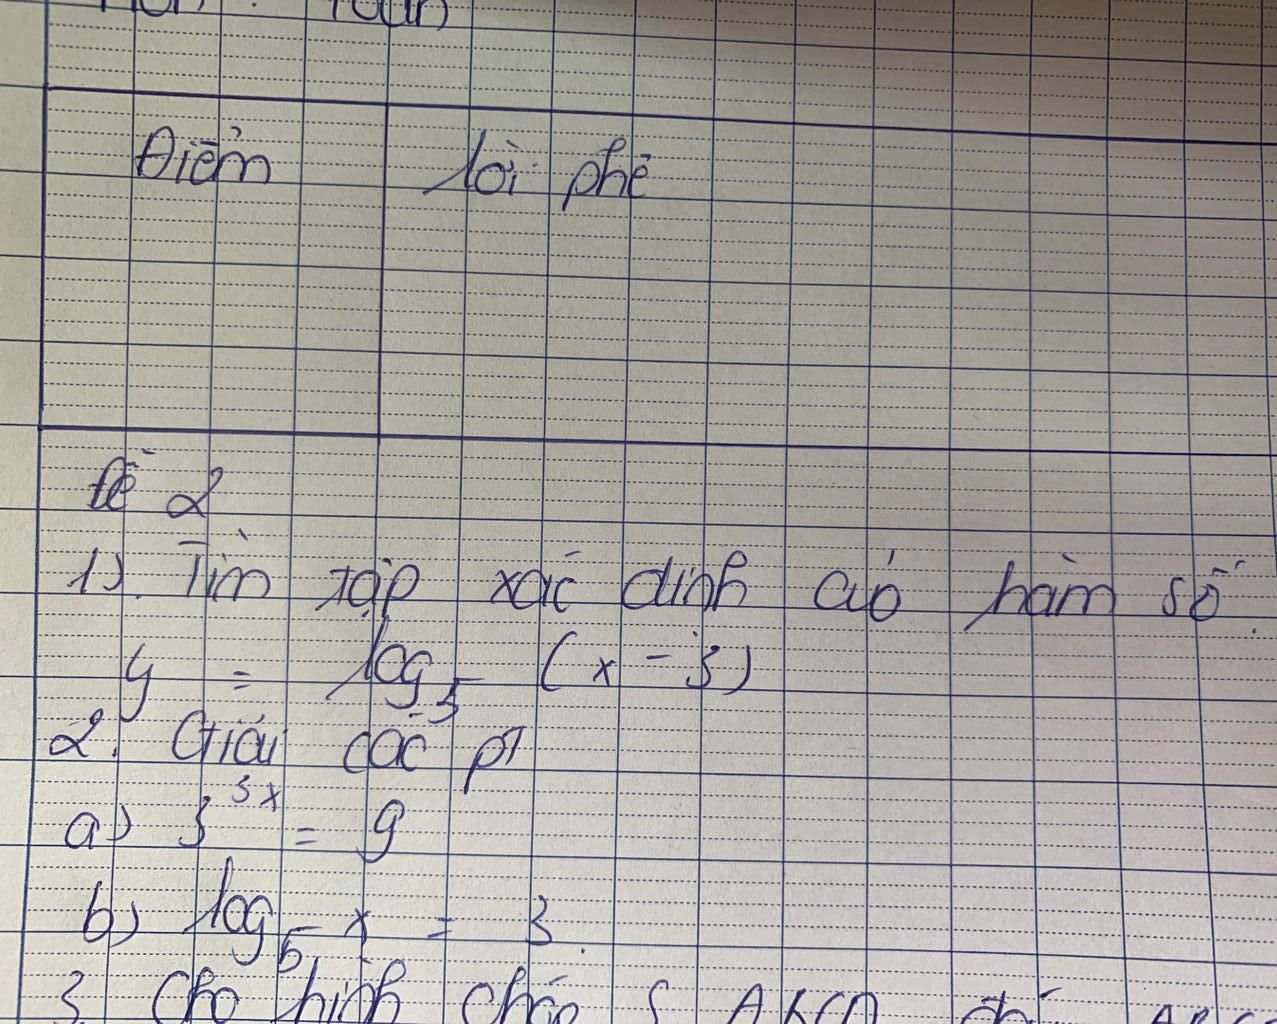 Môn : Toán
Điểm lời phê
Đề 2
1). Tìm tập xác định của hàm số.
y = log₅ (x - 3)
2. Giải các pt
a) 3³ˣ = 9
b) log₅ x = 3.
3. Cho hình chóp S ABCD